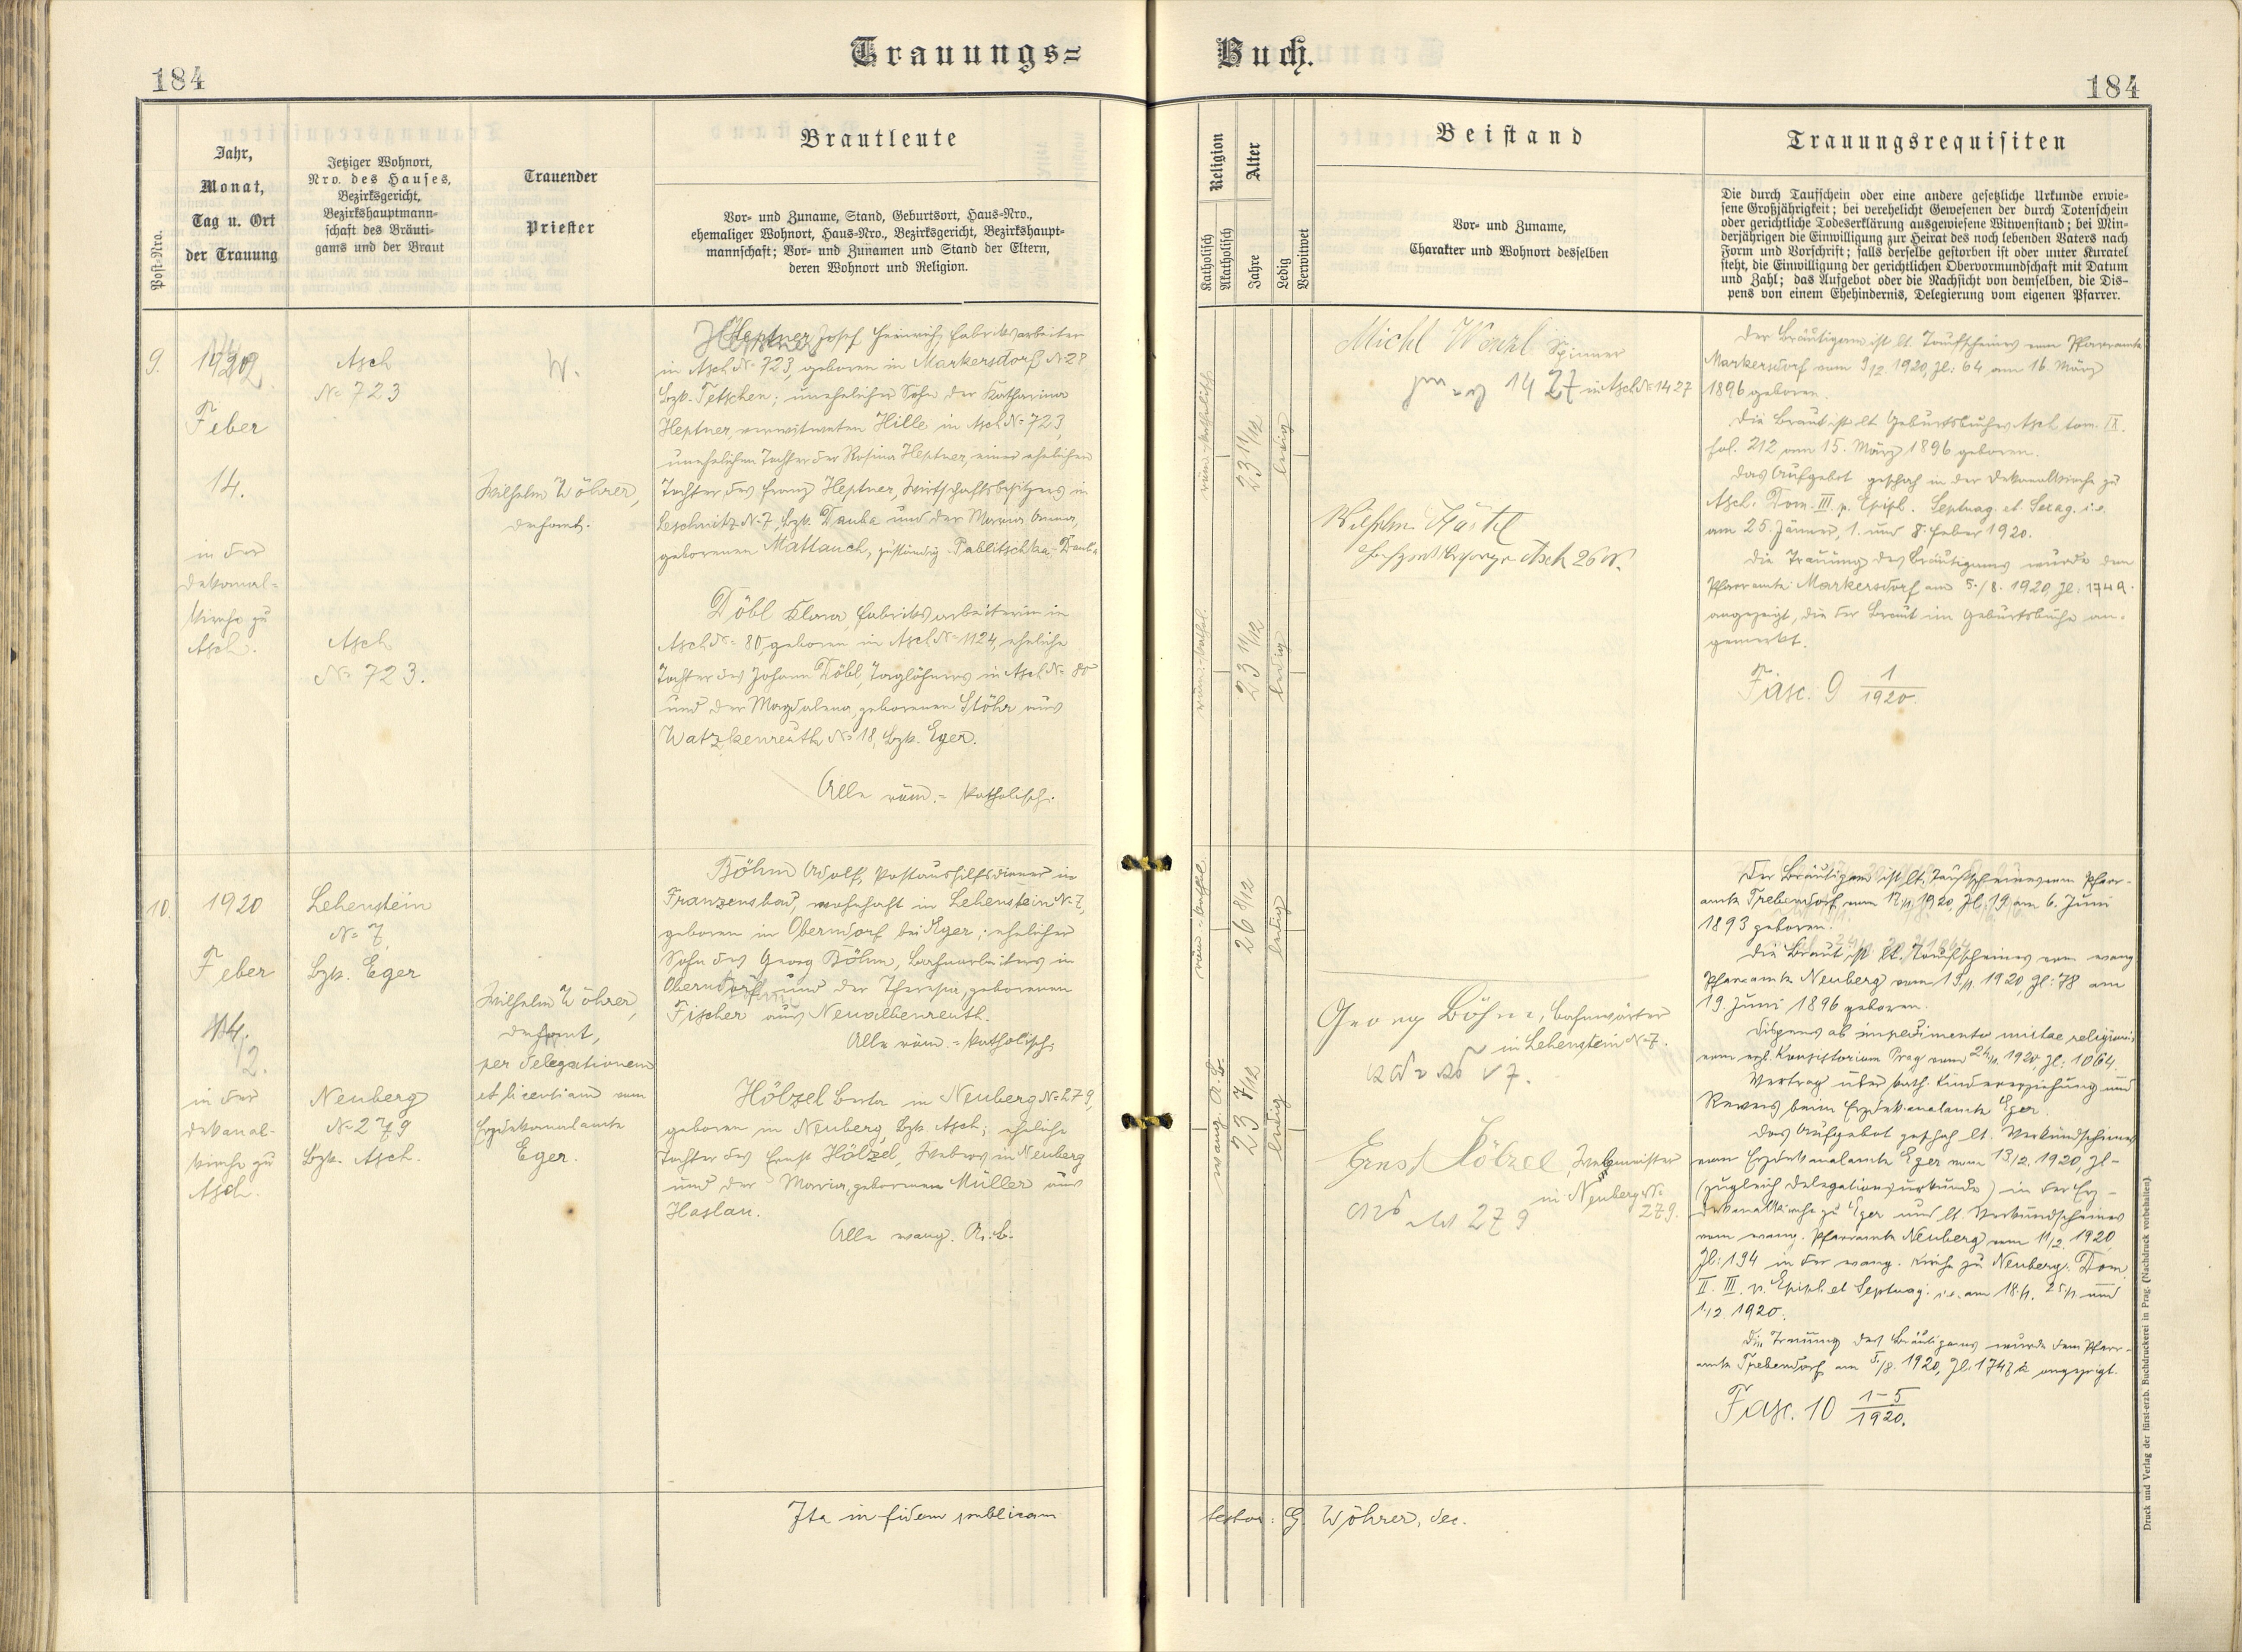 Trauungs=
Buch.
184
184
Post-Nro.
Jahr,
Monat,
Tag u. Ort
der Trauung
Jetziger Wohnort,
Nro. des Hauses,
Bezirksgericht,
Bezirkshauptmann=
schaft des Bräuti=
gams und der Braut
Trauender
Priester
Brautleute
Vor= und Zuname, Stand, Geburtsort, Haus=Nro.,
ehemaliger Wohnort, Haus=Nro., Bezirksgericht, Bezirkshaupt=
mannschaft; Vor= und Zunamen und Stand der Eltern,
deren Wohnort und Religion.
Religion
Katholisch
Akatholisch
Alter
Jahre
Ledig
Verwitwet
Beistand
Vor= und Zuname,
Charakter und Wohnort desselben
Trauungsrequisiten
Die durch Taufschein oder eine andere gesetzliche Urkunde erwie=
sene Großjährigkeit; bei verehelicht Gewesenen der durch Totenschein
oder gerichtliche Todeserklärung ausgewiesene Witwenstand; bei Min=
derjährigen die Einwilligung zur Heirat des noch lebenden Vaters nach
Form und Vorschrift; falls derselbe gestorben ist oder unter Kuratel
steht, die Einwilligung der gerichtlichen Obervormundschaft mit Datum
und Zahl; das Aufgebot oder die Nachsicht von demselben, die Dis=
pens von einem Ehehindernis, Delegierung vom eigenen Pfarrer.
9.
Feber
14.
in der
Dekanal=
kirche zu
Asch.
Asch
No 723
Asch
No 723.
W.
Wilhelm Wöhrer,
Dechant.
Heptner Josef Heinrich, Fabriksarbeiter
in Asch No 723, geboren in Markersdorf No 28
Bzk. Tetschen; unehelicher Sohn der Katharina
Heptner, verwitweten Hille in Asch No 723,
unehelichen Tochter der Rosina Heptner, einer ehelichen
Tochter des Franz Heptner, Wirtschaftsbesitzers in
Leschnitz No 7, Bzk. Dauba und der Maria Anna,
geborenen Mattauch, zuständig Pablitschka-Dauba
Döbl Klara, Fabriksarbeiterin in
Asch No 80, geboren in Asch No 1124, eheliche
Tochter des Johann Döbl, Taglöhners in Asch No 80
und der Magdalena, geborenen Stöhr aus
Watzkenreuth No 18, Bzk. Eger.
Alle röm.=katholisch.
röm. katholisch
23 11/12
ledig
röm.-kathol.
23 11/12
ledig
Michl Wenzl Spinner
1427 in Asch No 1427
Wilhelm
Asch
Der Bräutigam ist lt. Taufscheines vom Pfarramte
Markersdorf vom 9/12. 1920, Zl: 64 am 16. März
1896 geboren.
Die Braut ist lt. Geburtsbuches Asch tom. IX.
fol. 212 am 15. März 1896 geboren.
Das Aufgebot geschah in der Dekanalkirche zu
Asch. Dom. III. p. Epiph. Septuag. et Sexag. i.e.
am 25. Jänner, 1. und 8. Feber 1920.
Die Trauung des Bräutigams wurde dem
Pfarramte Markersdorf am 5./8. 1920, Zl: 1749.
angezeigt, die der Braut im Geburtsbuche an=
gemerkt.
Fasc. 9 1/1920.
10.
1920
Feber
14.
in der
Dekanal-
kirche zu
Asch.
Lehenstein
No 7,
Bzk. Eger
Neuberg
No 279
Bzk. Asch.
Wilhelm Wöhrer,
Dechant,
per delegationem
et licentiam vom
Erzdekanalamte
Eger.
Böhm Adolf, Postaushilfsdiener in
Franzensbad, wohnhaft in Lehenstein No 7,
geboren in Oberndorf bei Eger; ehelicher
Sohn des Georg Böhm, Bahnarbeiters in
Oberndorf und der Theresia, geborenen
Fischer aus Neualbenreuth.
Alle röm.=katholisch.
Hölzel Berta in Neuberg No 279,
geboren in Neuberg, Bzk. Asch; eheliche
Tochter des Ernst Hölzel, Webers in Neuberg
und der Maria, geborenen Müller aus
Haslau.
Alle evang. A. B.
röm.-kathol.
26 8/12
ledig
evang. A. B.
23 7/12
ledig
Georg Böhm, Bahnwärter
in Lehenstein No 7.
Ernst Hölzel, Webmeister
in Neuberg No
279.
Der Bräutigam ist lt. Taufscheines vom Pfarr=
amte Trebendorf vom 12/1. 1920, Zl: 19 am 6. Juni
1893 geboren.
Die Braut ist lt. Taufscheines vom evang
Pfarramte Neuberg vom 19./1. 1920, Zl: 78 am
19. Juni 1896 geboren.
Dispens ab impedimento mixtae religionis
vom erzb. Konsistorium Prag vom 24/1. 1920 Zl: 1064.
Vertrag über kath. Kindererziehung und
Revers beim Erzdekanalamte Eger.
Das Aufgebot geschah lt. Verkündscheines
vom Erzdekanalamte Eger vom 13/2. 1920, Zl-
(zugleich Delegationsurkunde) in der Erz-
dekanalkirche zu Eger und lt. Verkündscheines
vom evang. Pfarramte Neuberg vom 11/2. 1920
Zl: 194 in der evang. Kirche zu Neuberg. Dom.
II. III. p. Epiph. et Septuag. i.e. am 18./1. 25./1. und
1./2. 1920.
Die Trauung des Bräutigams wurde dem Pfarr=
amte Trebendorf am 5./8. 1920, Zl: 1747 angezeigt.
Fasc. 10 1-5/1920.
Ita in fidem publicam
testor: G. Wöhrer, dec.
Druck und Verlag der fürst-erzb. Buchdruckerei in Prag. (Nachdruck vorbehalten).